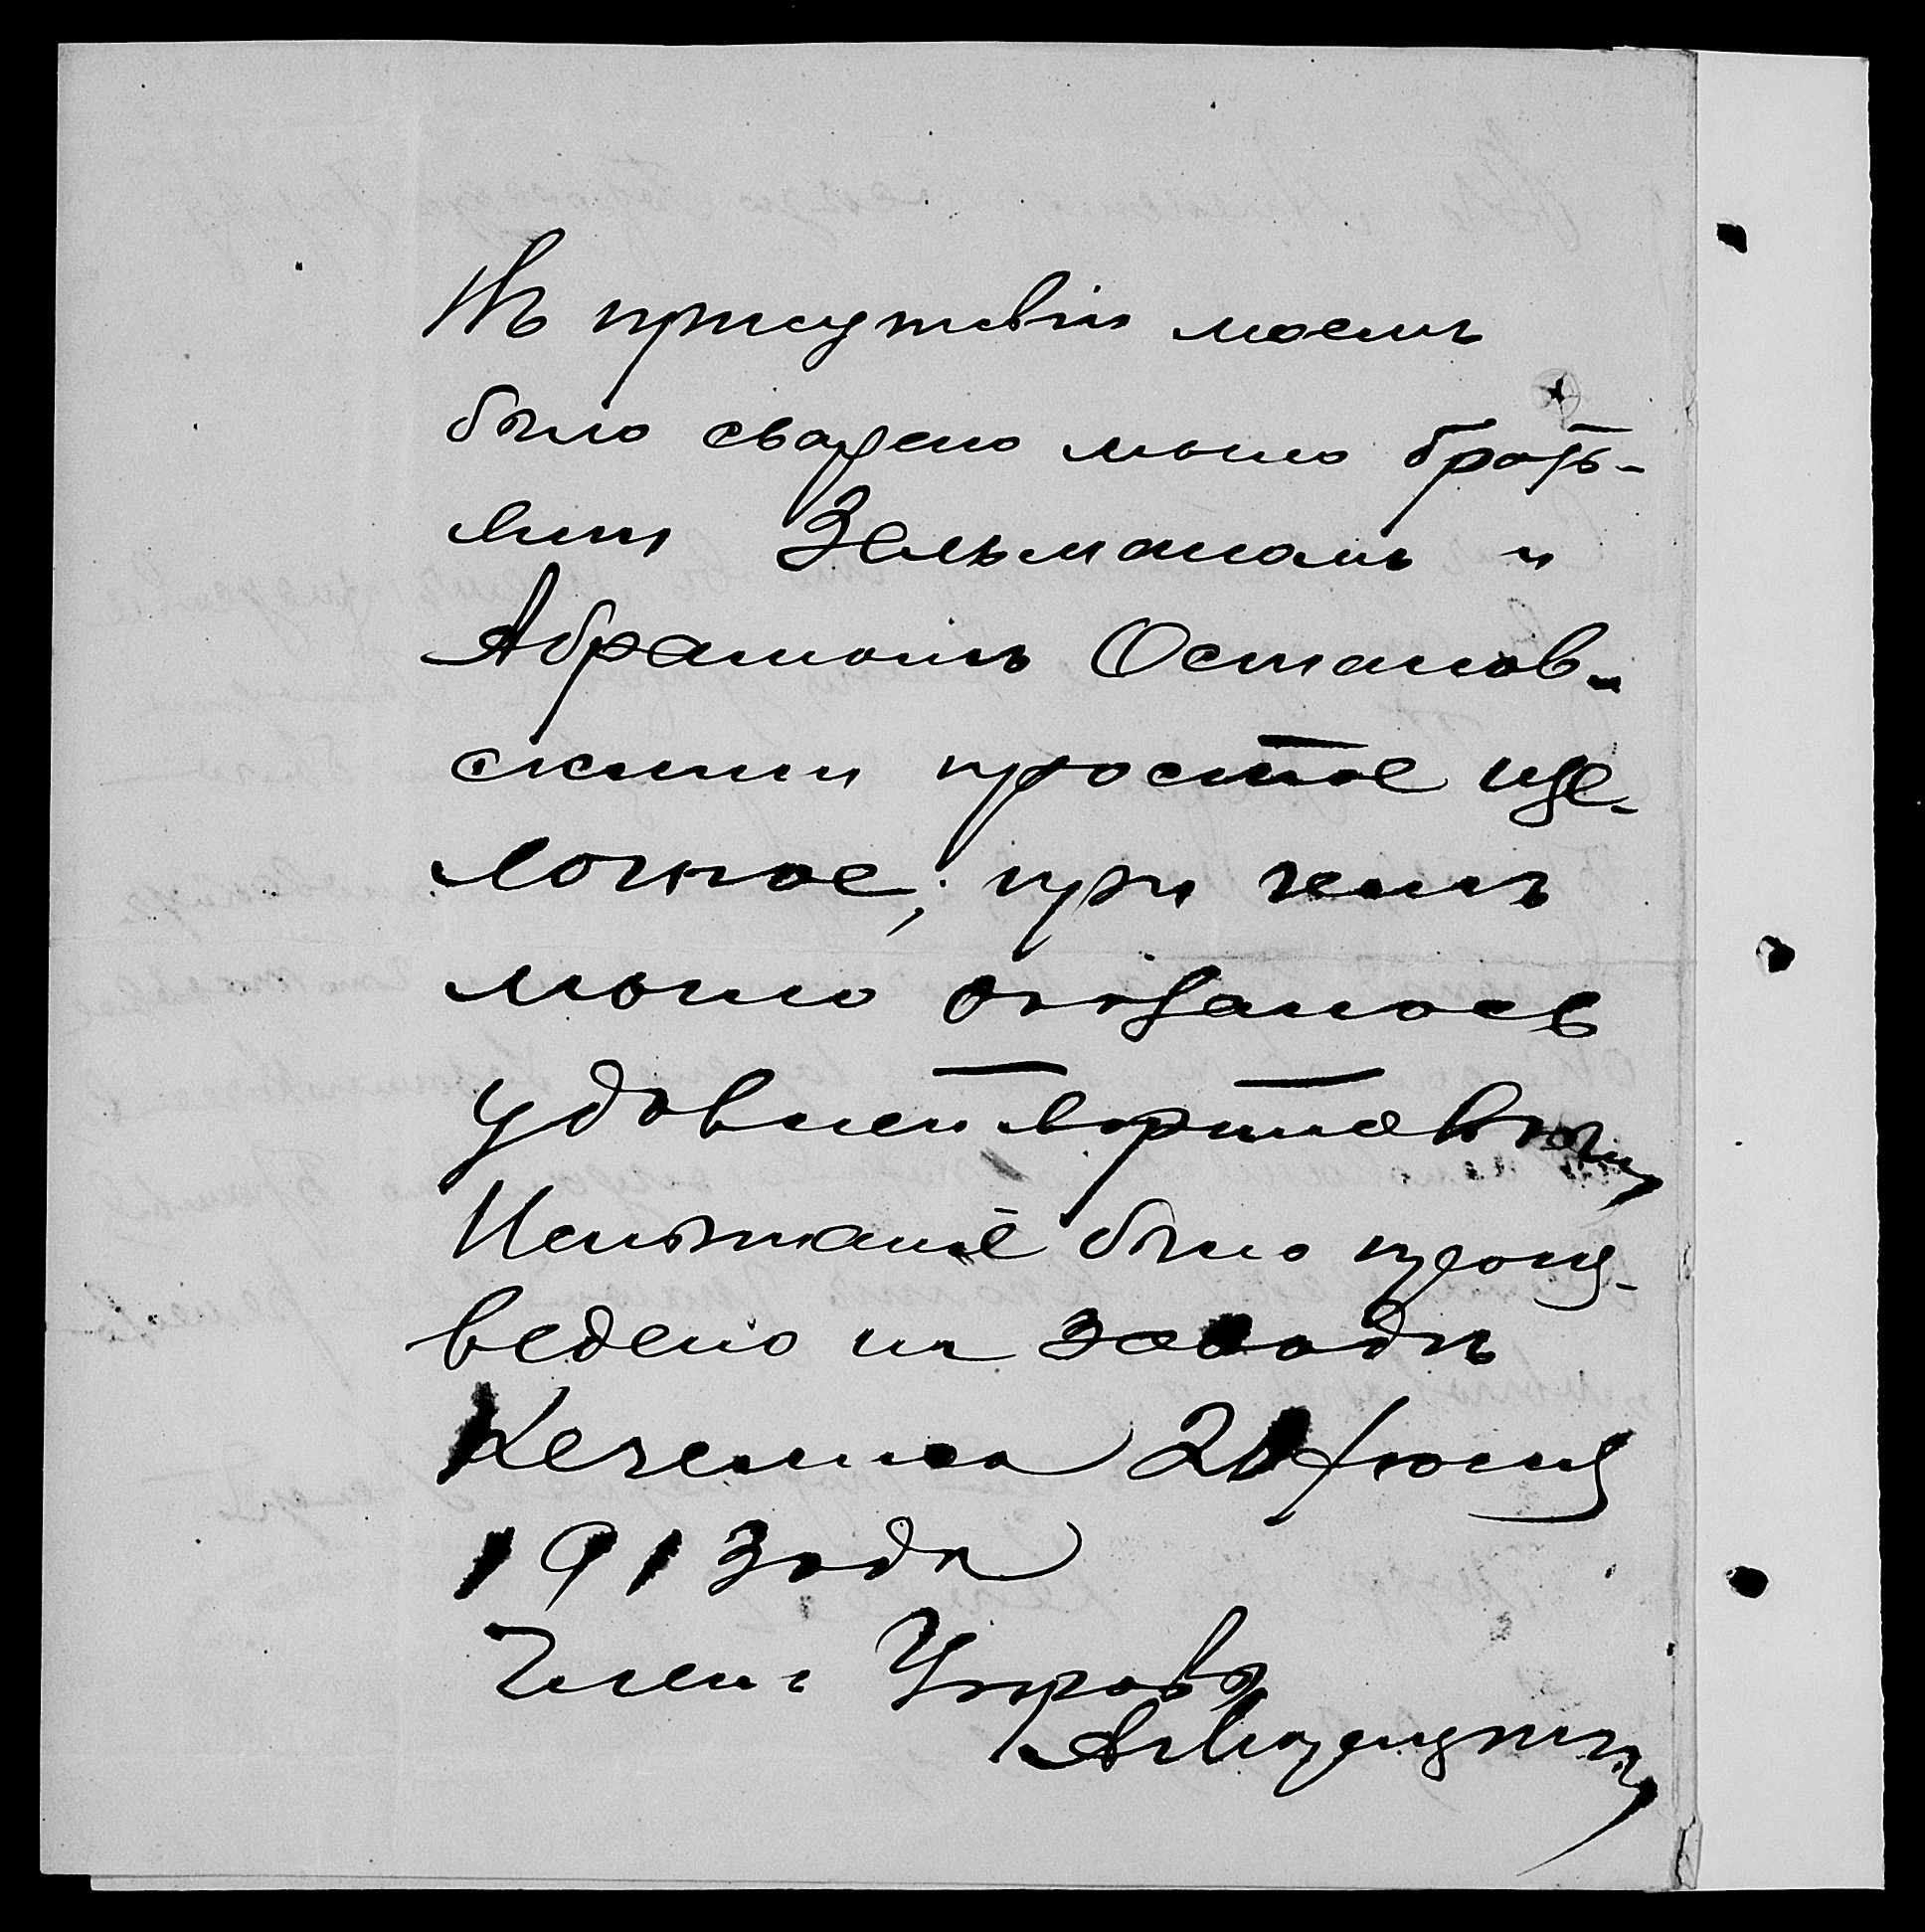 Въ присутствіи моемъ
было сварено мыло брать-
ями Зельманомъ и
Абрамомъ Останов-
скими простое ще-
лочное, при чемъ
мыло оказалось
удовлетворительнымъ
Испытаніе было произ-
ведено на заводѣ
20 Іюня
1913 года
Членъ Управы